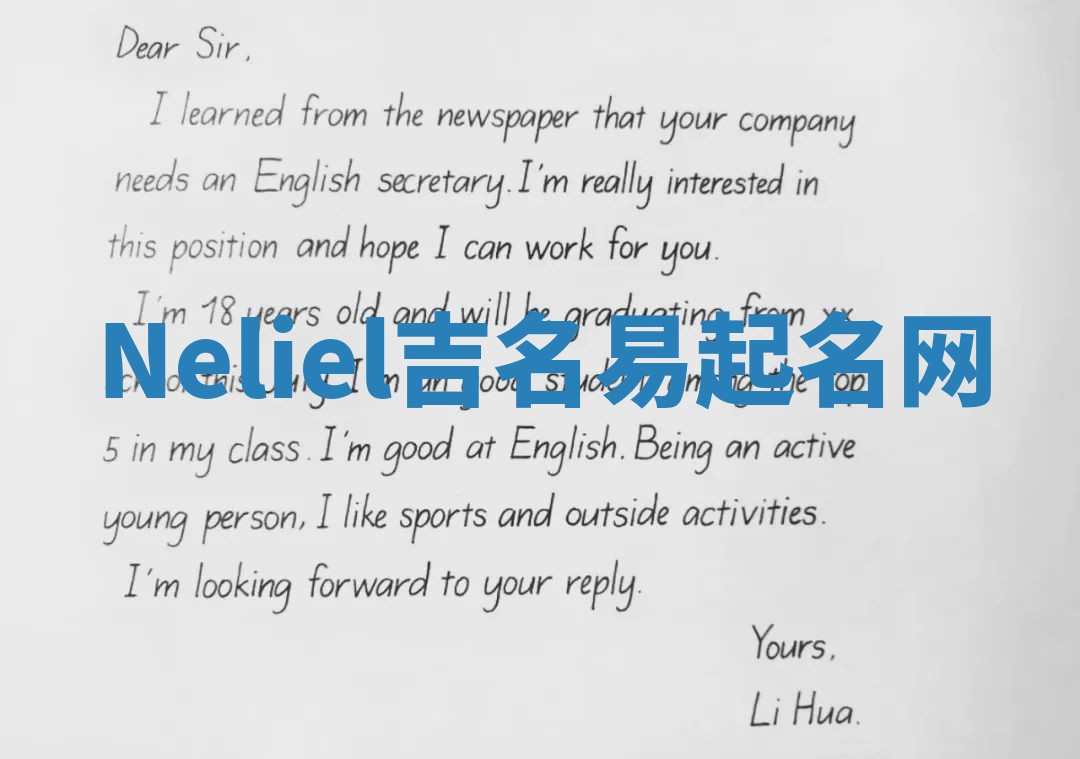 Dear Sir,
I learned from the newspaper that your company
needs an English secretary. I'm really interested in
this position and hope I can work for you.
I'm 18 years old and will be graduating from xx
Neliel吉名易起名网
this July. I'm student among the top
5 in my class. I'm good at English. Being an active
young person, I like sports and outside activities.
I'm looking forward to your reply.
Yours,
Li Hua.